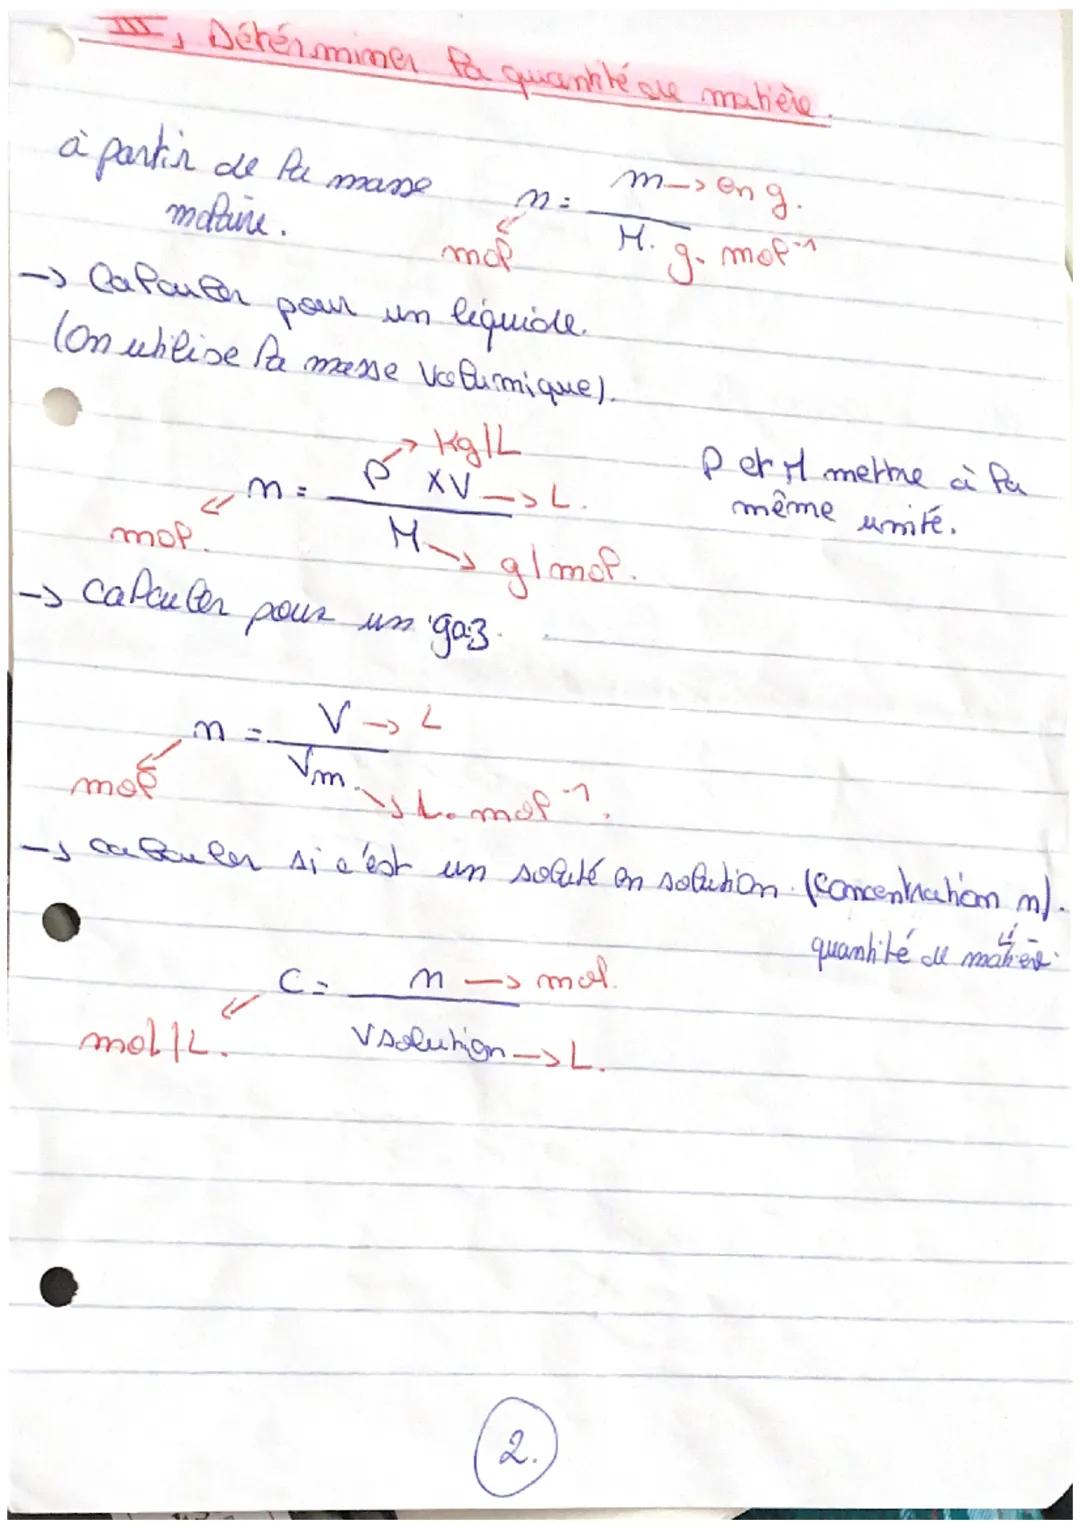 III, Détérminer la quantité de matière.
à partir de la masse
molaire.
n = m → en g.
mol M. g. mol⁻¹
→ Calculer pour un liquide.
(On utilise la masse volumique).
→ Kg/L
n = ρ x V → L.
mol. M → g/mol.
ρ et M mettre à la
même unité.
→ calculer pour un gaz.
n = V → L
mol Vm. → L. mol⁻¹.
→ calculer si c'est un soluté en solution. (concentration n).
quantité de matière.
C = n → mol.
mol/L. Vsolution → L.
2.